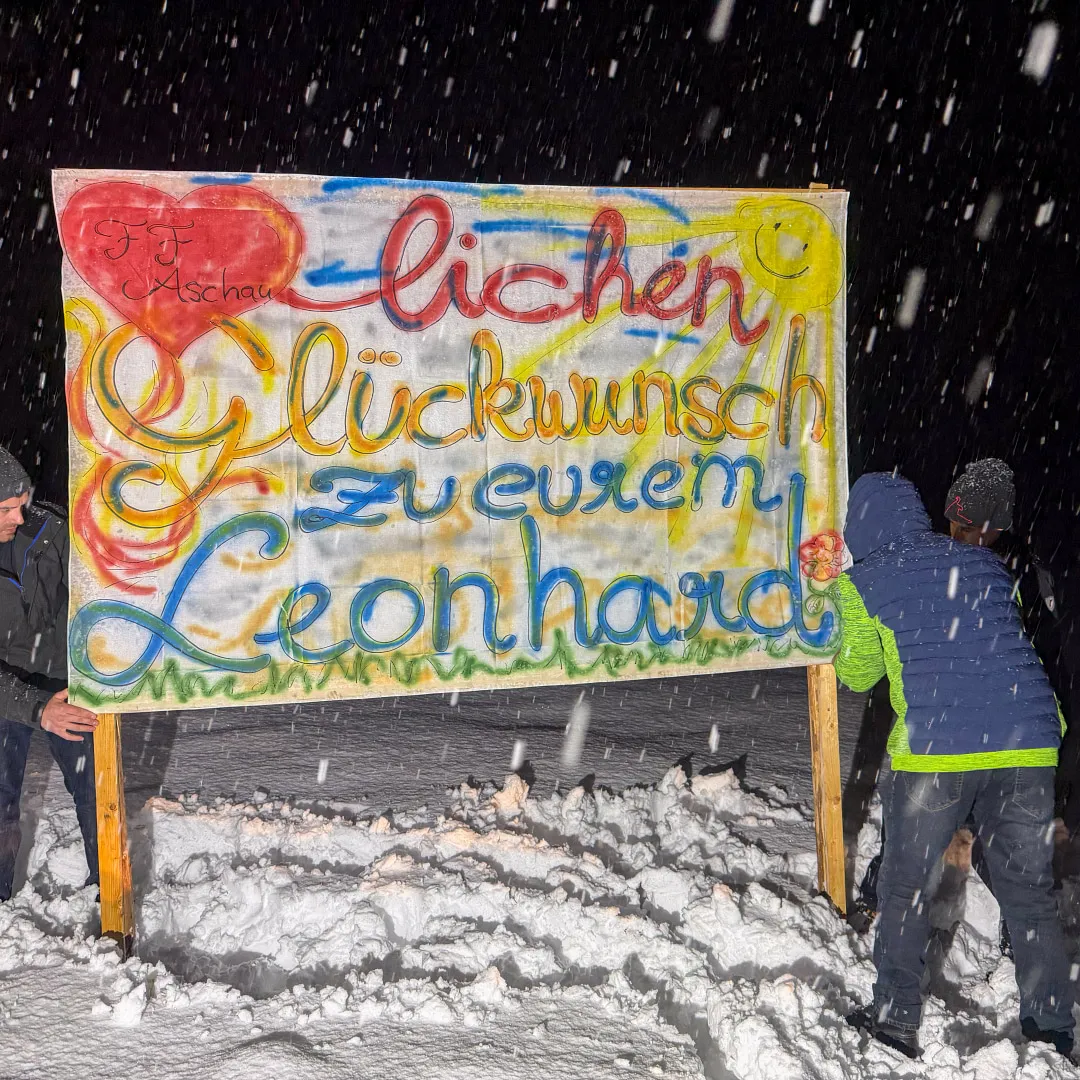 FF
Aschau
lichen
Glückwunsch
zu eurem
Leonhard